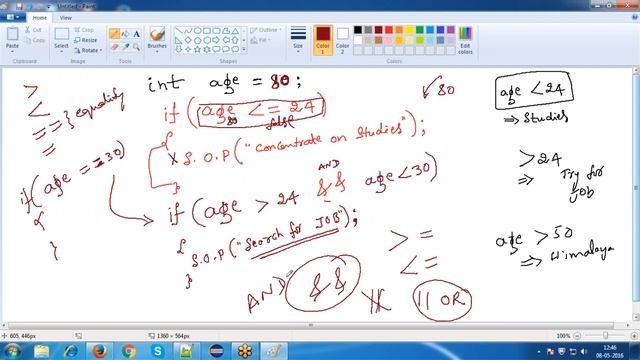 Untitled - Paint
Home View
Paste
Select
Brushes
Shapes
Size
Color 1
Color 2
Edit colors
Clipboard
Image
Tools
Shapes
Colors
>
<
== } equality
=
int age = 80;
if (age <= 24)
80 false
{
X S.O.P("Concentrate on Studies");
}
if(age == 30)
{
}
AND
if (age > 24 && age < 30)
{
S.O.P("Search for JOB");
}
> =
< =
AND && || OR
80
age < 24
⇒ Studies
> 24
⇒ Try for Job
age > 50
⇒ Himalaya
605, 446px
1360 × 564px
100%
12:46
08-05-2016